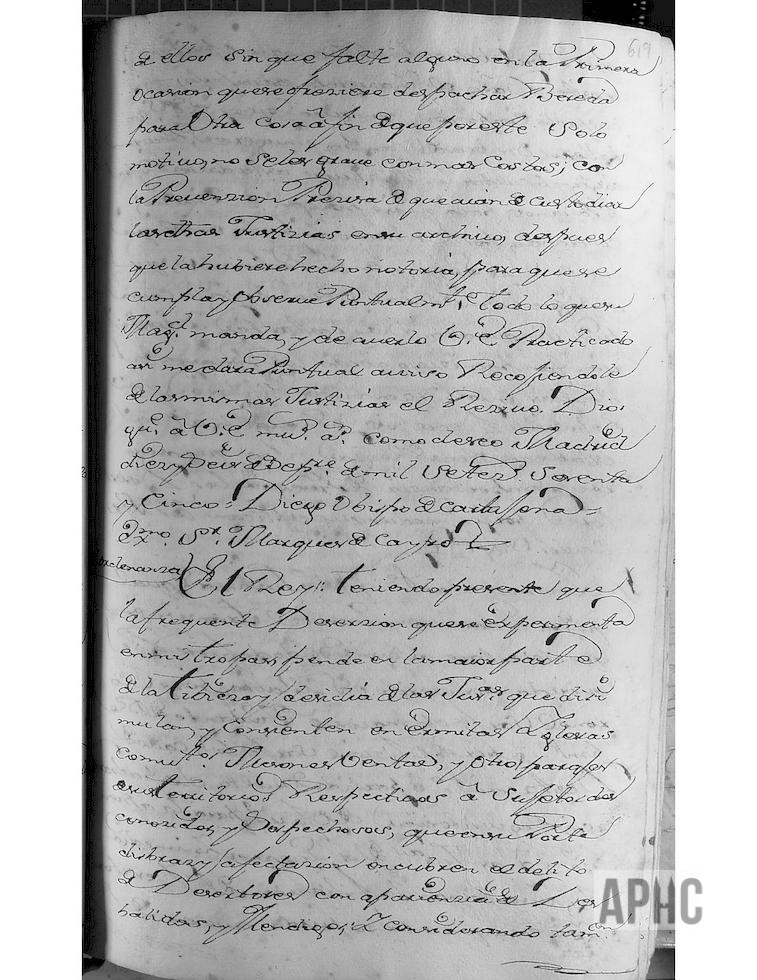 619
de ellos sin que falte alguno en la Primera
ocasion que se ofreziere despachar Bereda
para Otra cosa à fin de que por este Solo
motivo, no se les grave con mas Costas; con
la Prevenzion Prezisa de que aian de custodiar
las dhas Justizias en su archivo, despues
que la hubiere hecho notoria, para que se
cumpla y Observe Puntualmte. todo lo que su
Magd. manda, y de averlo V.E. Practicado
asi me dara Puntual aviso Recojiendole
de las mismas Justizias el Rezivo. Dios
gue. à V.E. mus. as. como deseo Madrid
diez y seis de Dizre. de mil Setezs. Quarenta
y Cinco = Diego Obispo de Cartajena =
Exmo. Sr. Marques de Caylo
Ordenanza El Rey: teniendo presente que
la frequente Deserzion que se experimenta
en mis tropas, pende en la maior parte
de la tibieza y desidia de las Jusas. que disi
mulan, y Consienten en ermitas Iglesias
comuos. Mesones Ventas, y otros parajes
en sus territorios Respectivos à Sujetos des
conozidos, y Sospechosos, que en su Porte
librea y afectazion encubren el delito
de Desertores con aparienzia de
balidos, y Mendigos; Y considerando tamn.
APHC